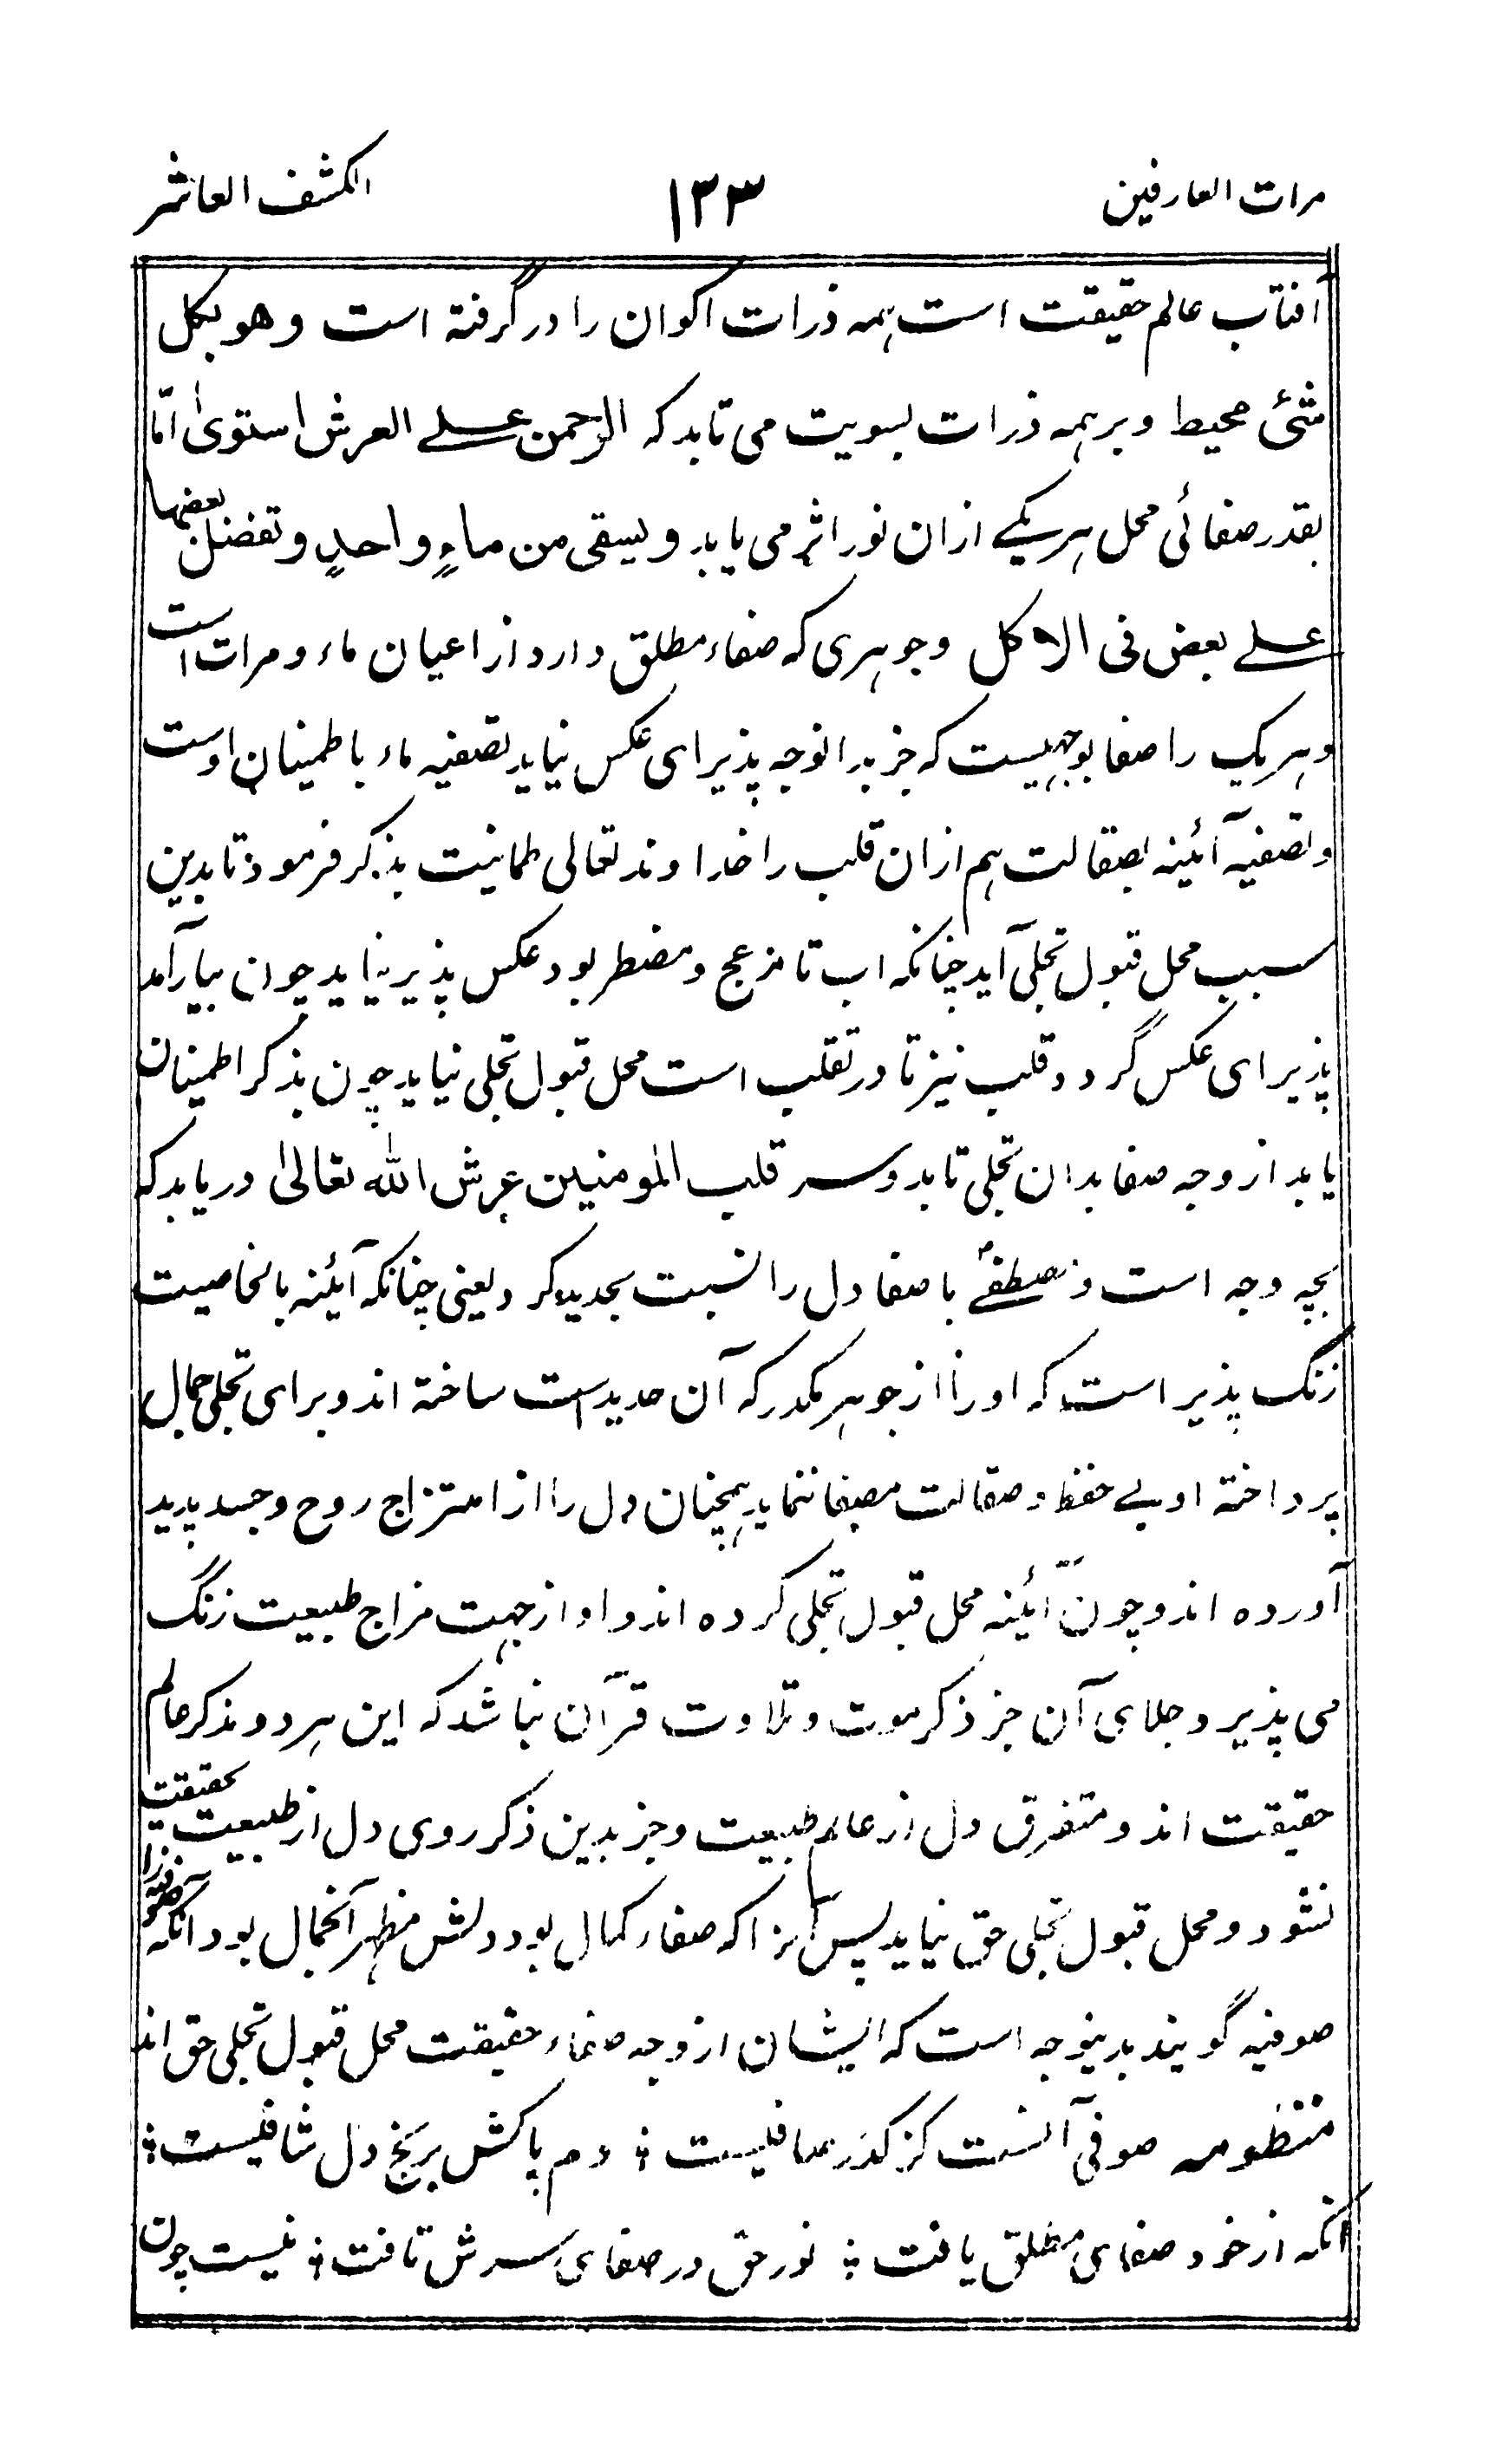 مرات العارفین ۱۳۳ الکشف العاشر
آفتاب عالم حقیقت است ہمہ ذرات اکوان را در گرفتہ است وهو بکل
شئی محیط و بر ہمہ ذرات بسویت می تابد کہ الرحمن علے العرش استوىٰ امّا
بقدر صفائی محل ہر یکے ازان نور اثر می یابد و یسقی من ماءٍ واحدٍ و تفضل بعضها
علے بعض فی الاکل وجوہری کہ صفاء مطلق دارد از اعیان ماء و مرات است
و ہر یک را صفا بوجہیست کہ جز بدانوجہ پذیرای عکس نیاید تصفیہ ماء باطمینان اوست
و تصفیہ آئینہ بصقالت ہم ازان قلب را خداوند تعالی طمانیت بذکر فرمود تا بدین
سبب محل قبول تجلی آید چنانکہ اب تا مزعج و مضطر بود عکس پذیر نیاید چون بیارآمد
پذیرای عکس گردد قلب نیز تا در تقلب است محل قبول تجلی نیاید چون بذکر اطمینان
یابد از وجہ صفا بدان تجلی تابد و سر قلب المومنین عرش اللہ تعالیٰ دریابد کہ
بچہ وجہ است و مصطفےٰ باصفا دل را نسبت بحدید کرد یعنی چنانکہ آئینہ بالخاصیت
زنگ پذیر است کہ او را از جوہر مکدر کہ آن حدید است ساختہ اند و برای تجلی جمال
پرداختہ او بے حفظ و صقالت مصفا ننماید ہمچنان دل را از امتزاج روح وجسد پدید
آوردہ اند و چون آئینہ محل قبول تجلی کردہ اند و او از جہت مزاج طبیعت زنگ
می پذیرد جلای آن جز ذکر موت و تلاوت قرآن نباشد کہ این ہر دو مذکر عالم
حقیقت اند و متفرق دل از عالم طبیعت و جز بدین ذکر روی دل از طبیعت بحقیقت
نشود و محل قبول تجلی حق نیاید پس آنرا کہ صفاء کمال بود دلش مظہر آنجمال بود آنکہ صوفیہ را
صوفیہ گویند بدینوجہ است کہ ایشان از وجہ صفاء حقیقت محل قبول تجلی حق اند
منظومہ صوفی آنست کز کدر صافیست ؛ دم پاکش برنج دل شافیست ؛
آنکہ از خود صفای مطلق یافت ؛ نور حق در صفای سرش تافت ؛ نیست چون